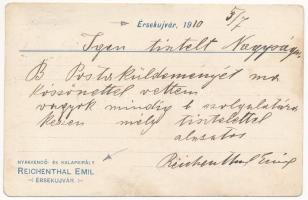 Érsekujvár, 1910 5/7
Igen tisztelt Nagysága
B Postaküldeményét ma
köszönettel vettem
vagyok mindig b szolgálatára
készen mély tisztelettel
alázatos
Reichenthal Emil
NYAKKENDŐ- ÉS KALAPKIRÁLY
REICHENTHAL EMIL
ÉRSEKUJVÁR.